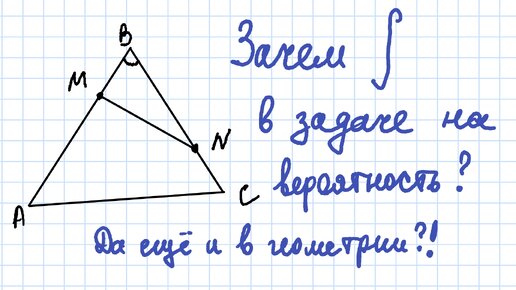 B
M
N
A
C
Зачем ∫
в задаче на
вероятность?
Да ещё и в геометрии?!